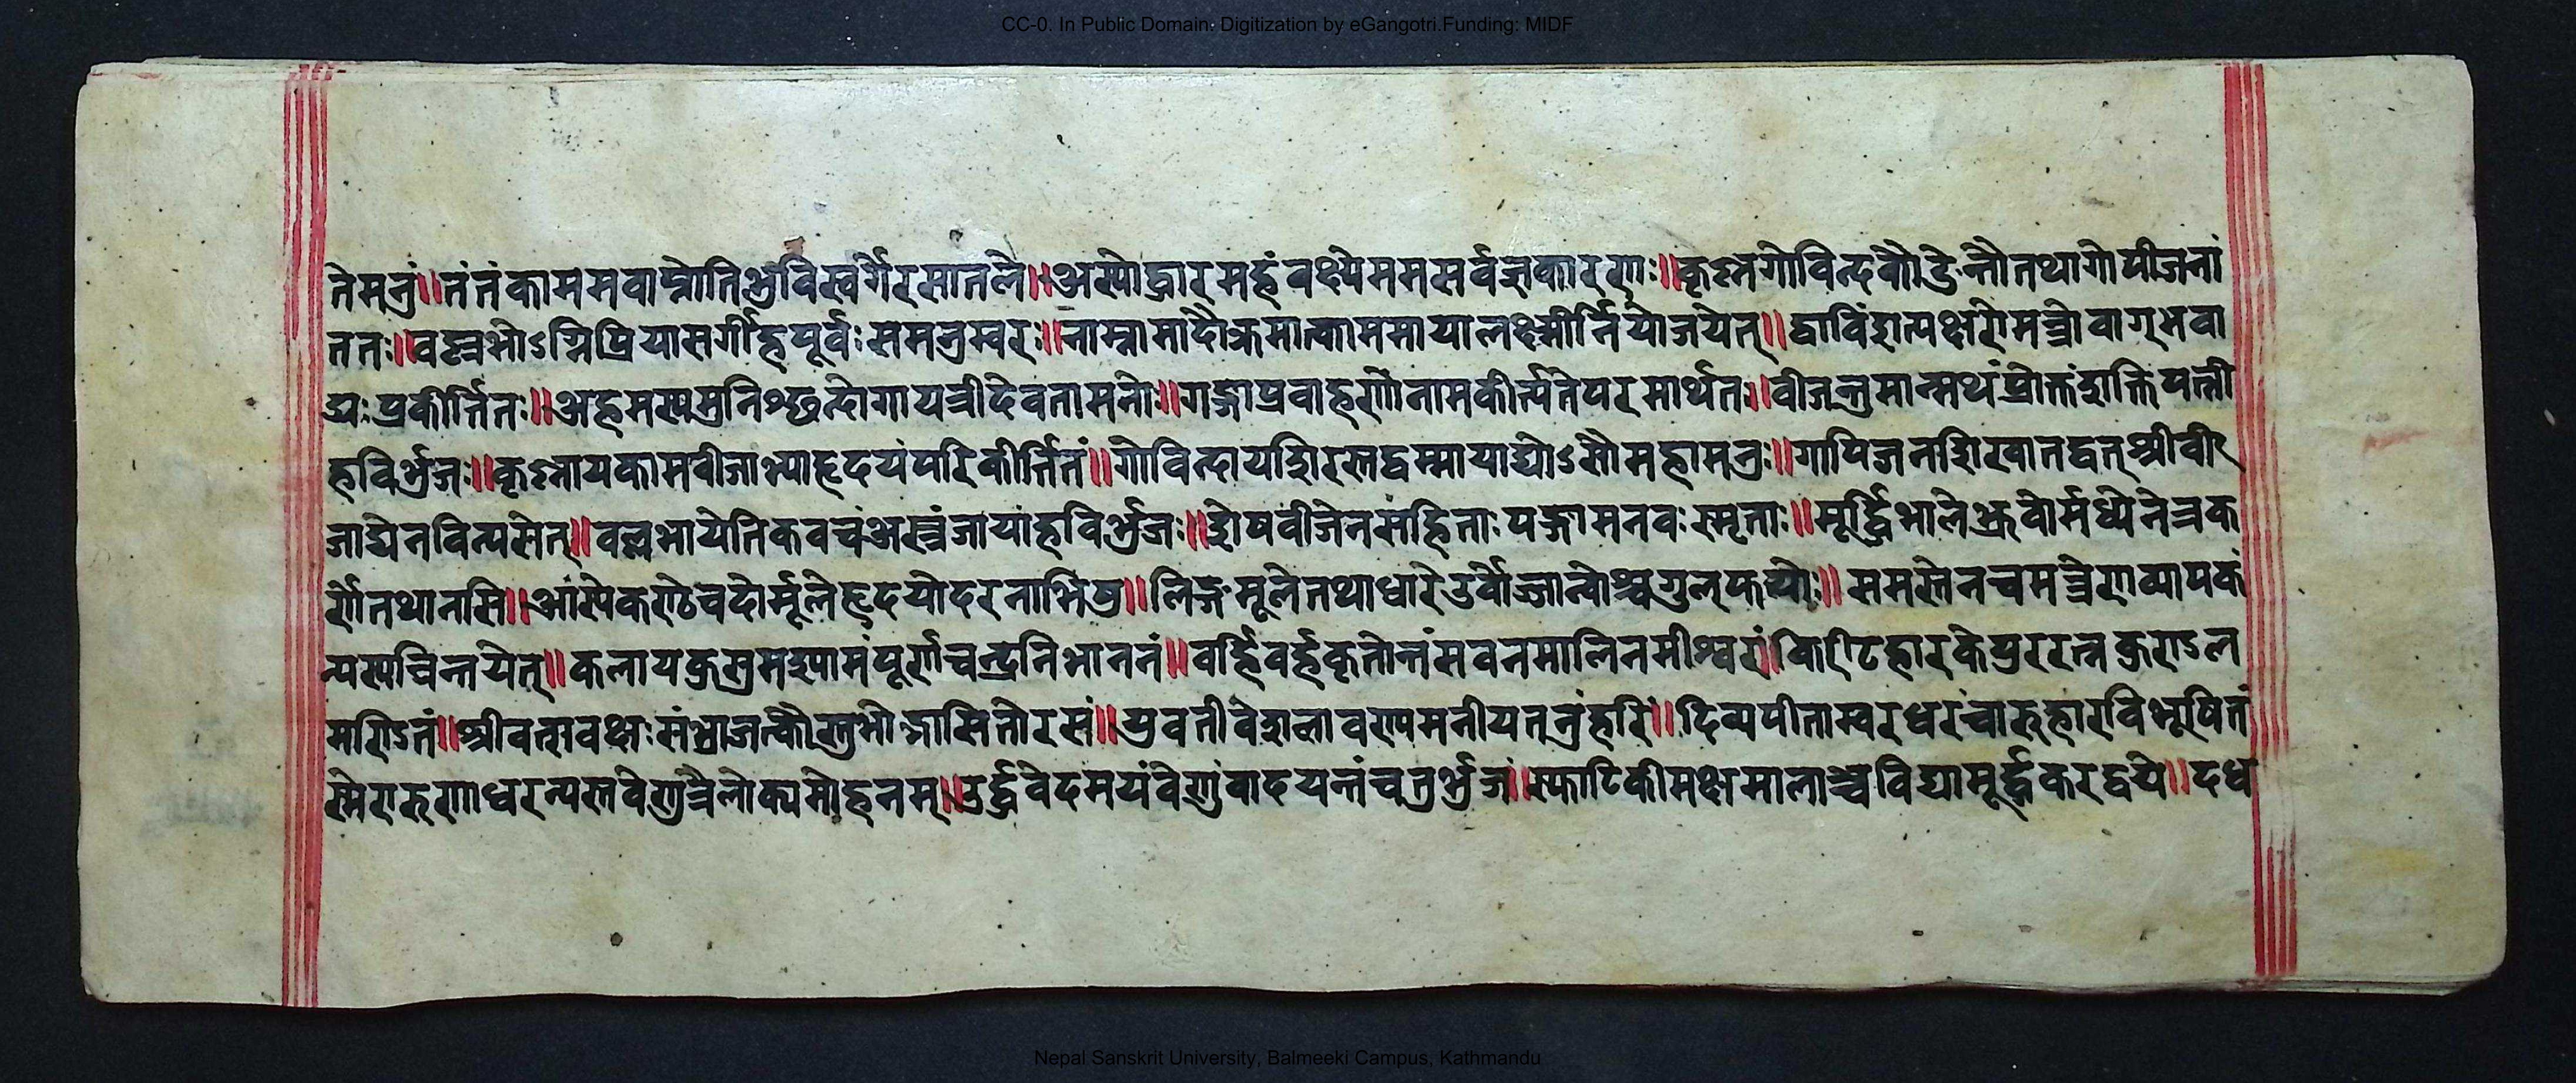 CC-0. In Public Domain. Digitization by eGangotri.Funding: MIDF
तेमनुं॥तंतंकाममवाप्नोतिभुविस्वर्गेरसातले॥अस्योद्धारमहंवक्ष्येममसर्वज्ञकारणः॥कृष्नगोविन्दकौङेन्तौतथागोपीजनां
ततः॥वल्लभोऽग्निप्रियासर्गीहपूर्वःसमनुस्वरः॥नाम्नामादौक्रमात्काममायालक्ष्मीर्नियोजयेत्॥द्वाविंशत्यक्षरोमन्त्रोवाग्भवा
द्यःप्रकीर्त्तितः॥अहमस्यमुनिश्छन्दोगायत्रीदेवतामनोः॥गङ्गाप्रवाहर्णोनामकीर्त्यतेपरमार्थतः॥वीजन्तुमान्मथंप्रोक्तंशक्तिपत्नी
हविर्भुजः॥कृष्नायकामवीजाभ्याहृदयंपरिकीर्त्तितं॥गोविन्दायशिरस्तद्वम्मायाद्योऽसौमहामनुः॥गोपिजनशिखातद्वत्श्रीवी
जाद्येनविन्यसेत्॥वल्लभायेतिकवचंअस्त्रंजायाहविर्भुजः॥शेषवीजेनसंहिताःपञ्चामनवःस्मृताः॥मूर्द्ध्निभालेभ्रुवोर्मध्येनेत्रक
र्णेतथानसि॥आस्येकण्ठेचदोर्मूलेहृदयोदरनाभिषु॥लिङ्गमूलेतथाधारेउर्वोर्ज्जान्वोश्चगुल्फयोः॥समस्तेनचमन्त्रेणव्यापकं
न्यस्यचिन्तयेत्॥कलायकुसुमश्यामंपूर्णचन्द्रनिभाननं॥वर्हिवर्हकृतोत्तंसवनमालिनमीश्वरं॥किरीटहारकेयुररत्नकुण्डल
मण्डितं॥श्रीवत्सवक्षःसंभ्राजत्कौस्तुभोद्भासितोरसं॥युवतीवेशलावण्यमनीयतनुंहरिं॥दिव्यपीताम्बरधरंचारुहारविभूषितं
स्मेरारुणाधरन्यस्तवेणुत्रैलोक्यमोहनम्॥उर्द्ध्ववेदमयंवेणुंवादयन्तंचतुर्भुजं॥स्फाटिकीमक्षमालाञ्चविद्यामूर्द्ध्वकरद्वये॥दध
Nepal Sanskrit University, Balmeeki Campus, Kathmandu